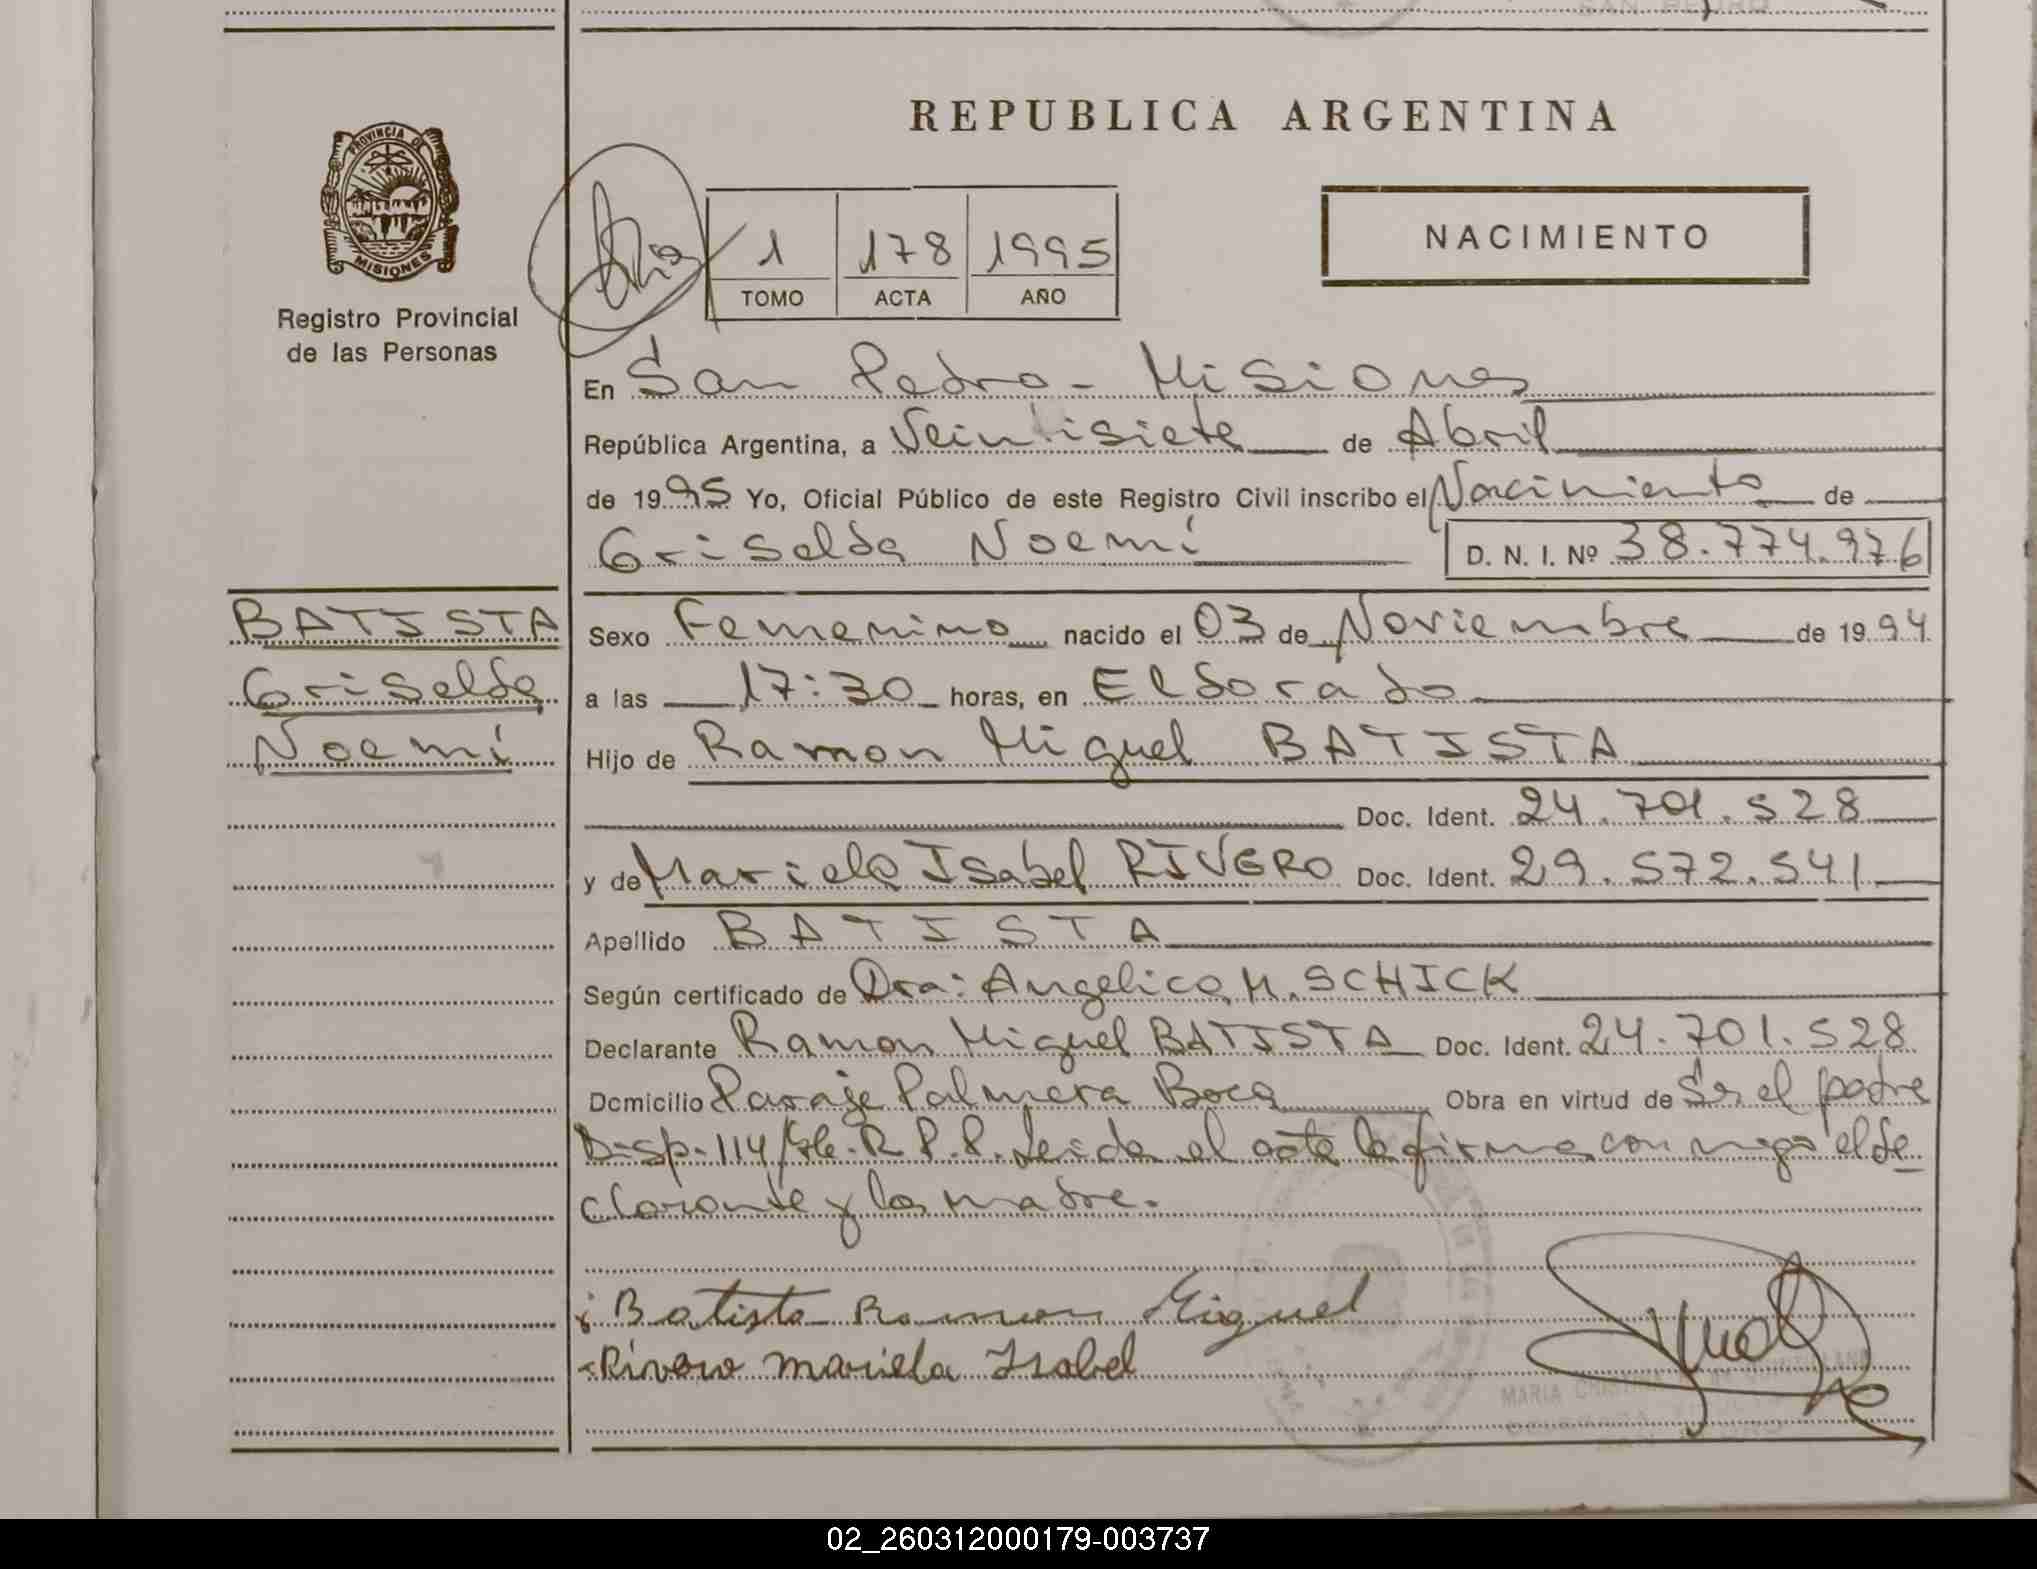 SAN PEDRO
REPUBLICA ARGENTINA
PROVINCIA DE
MISIONES
Registro Provincial
de las Personas
1 178 1995
TOMO ACTA AÑO
NACIMIENTO
En San Pedro - Misiones
República Argentina, a Veintisiete de Abril
de 1995 Yo, Oficial Público de este Registro Civil inscribo el Nacimiento de
Griselda Noemí D. N. I. Nº 38.774.976
BATISTA
Griselda
Noemí
Sexo Femenino nacido el 03 de Noviembre de 1994
a las 17:30 horas, en Eldorado
Hijo de Ramon Miguel BATISTA
Doc. Ident. 24.701.528
y de Mariela Isabel RIVERO Doc. Ident. 29.572.541
Apellido BATISTA
Según certificado de Dra: Angelica M. SCHICK
Declarante Ramon Miguel BATISTA Doc. Ident. 24.701.528
Domicilio Paraje Palmera Boca Obra en virtud de Ser el padre
Disp. 114/86. R.P.P. Leida el acta la firma con migo el de
clarante y la madre.
Batista Ramon Miguel
Rivero mariela Isabel
MARIA CRISTINA
SAN PEDRO
02_260312000179-003737